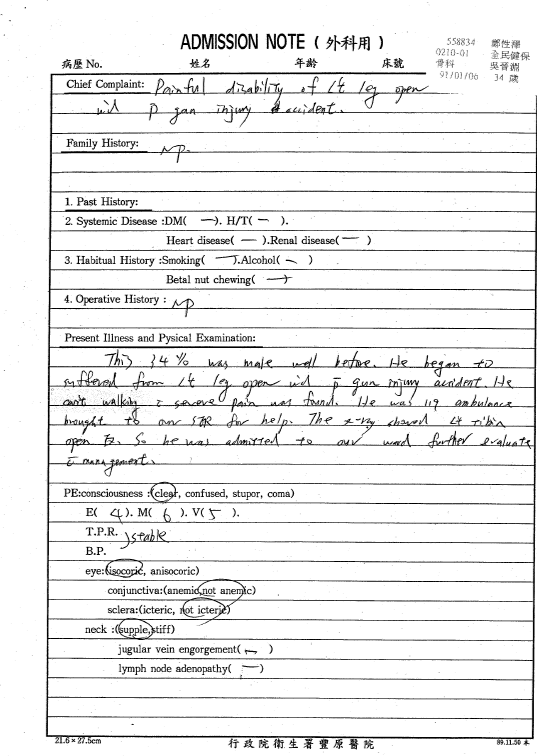 ADMISSION NOTE ( 外科用 )
558834 鄭性澤
0210-01 全民健保
骨科
91/01/06 34 歲
病歷 No. 姓名 年齡 床號
Chief Complaint: Painful disability of Lt leg open
p̄ gun injury accident.
Family History: NP.
1. Past History:
2. Systemic Disease :DM( — ). H/T( — ).
Heart disease( — ).Renal disease( — )
3. Habitual History :Smoking( — ).Alcohol( — )
Betal nut chewing( — )
4. Operative History : NP
Present Illness and Pysical Examination:
This 34 y/o was male well before. He began to
suffered from Lt leg open p̄ gun injury accident. He
can't walking c̄ severe pain was found. He was 119 ambulance
brought to our for help. The x-ray showed Lt tibia
open Fx. So he was admitted to our ward further evaluate
c̄ management.
PE:consciousness :(clear, confused, stupor, coma)
E( 4 ). M( 6 ). V( 5 ).
T.P.R. stable
B.P.
eye:(isocoric, anisocoric)
conjunctiva:(anemic,not anemic)
sclera:(icteric, not icteric)
neck :(supple,stiff)
jugular vein engorgement( — )
lymph node adenopathy( — )
21.6×27.5cm 行政院衛生署豐原醫院 89.11.50 本